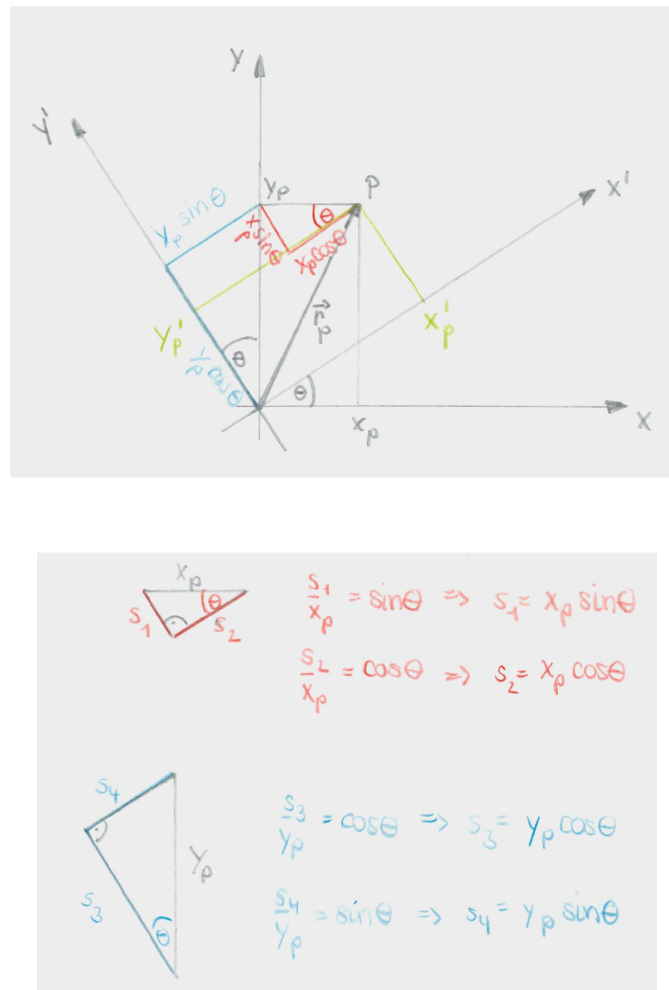 y
y'
x'
y_p
P
θ
y_p sinθ
x_p sinθ
x_p cosθ
r⃗_p
y_p'
x_p'
θ
y_p cosθ
θ
x_p
x
x_p
s_1
θ
s_2
s_1/x_p = sinθ => s_1 = x_p sinθ
s_2/x_p = cosθ => s_2 = x_p cosθ
s_4
y_p
s_3
θ
s_3/y_p = cosθ => s_3 = y_p cosθ
s_4/y_p = sinθ => s_4 = y_p sinθ